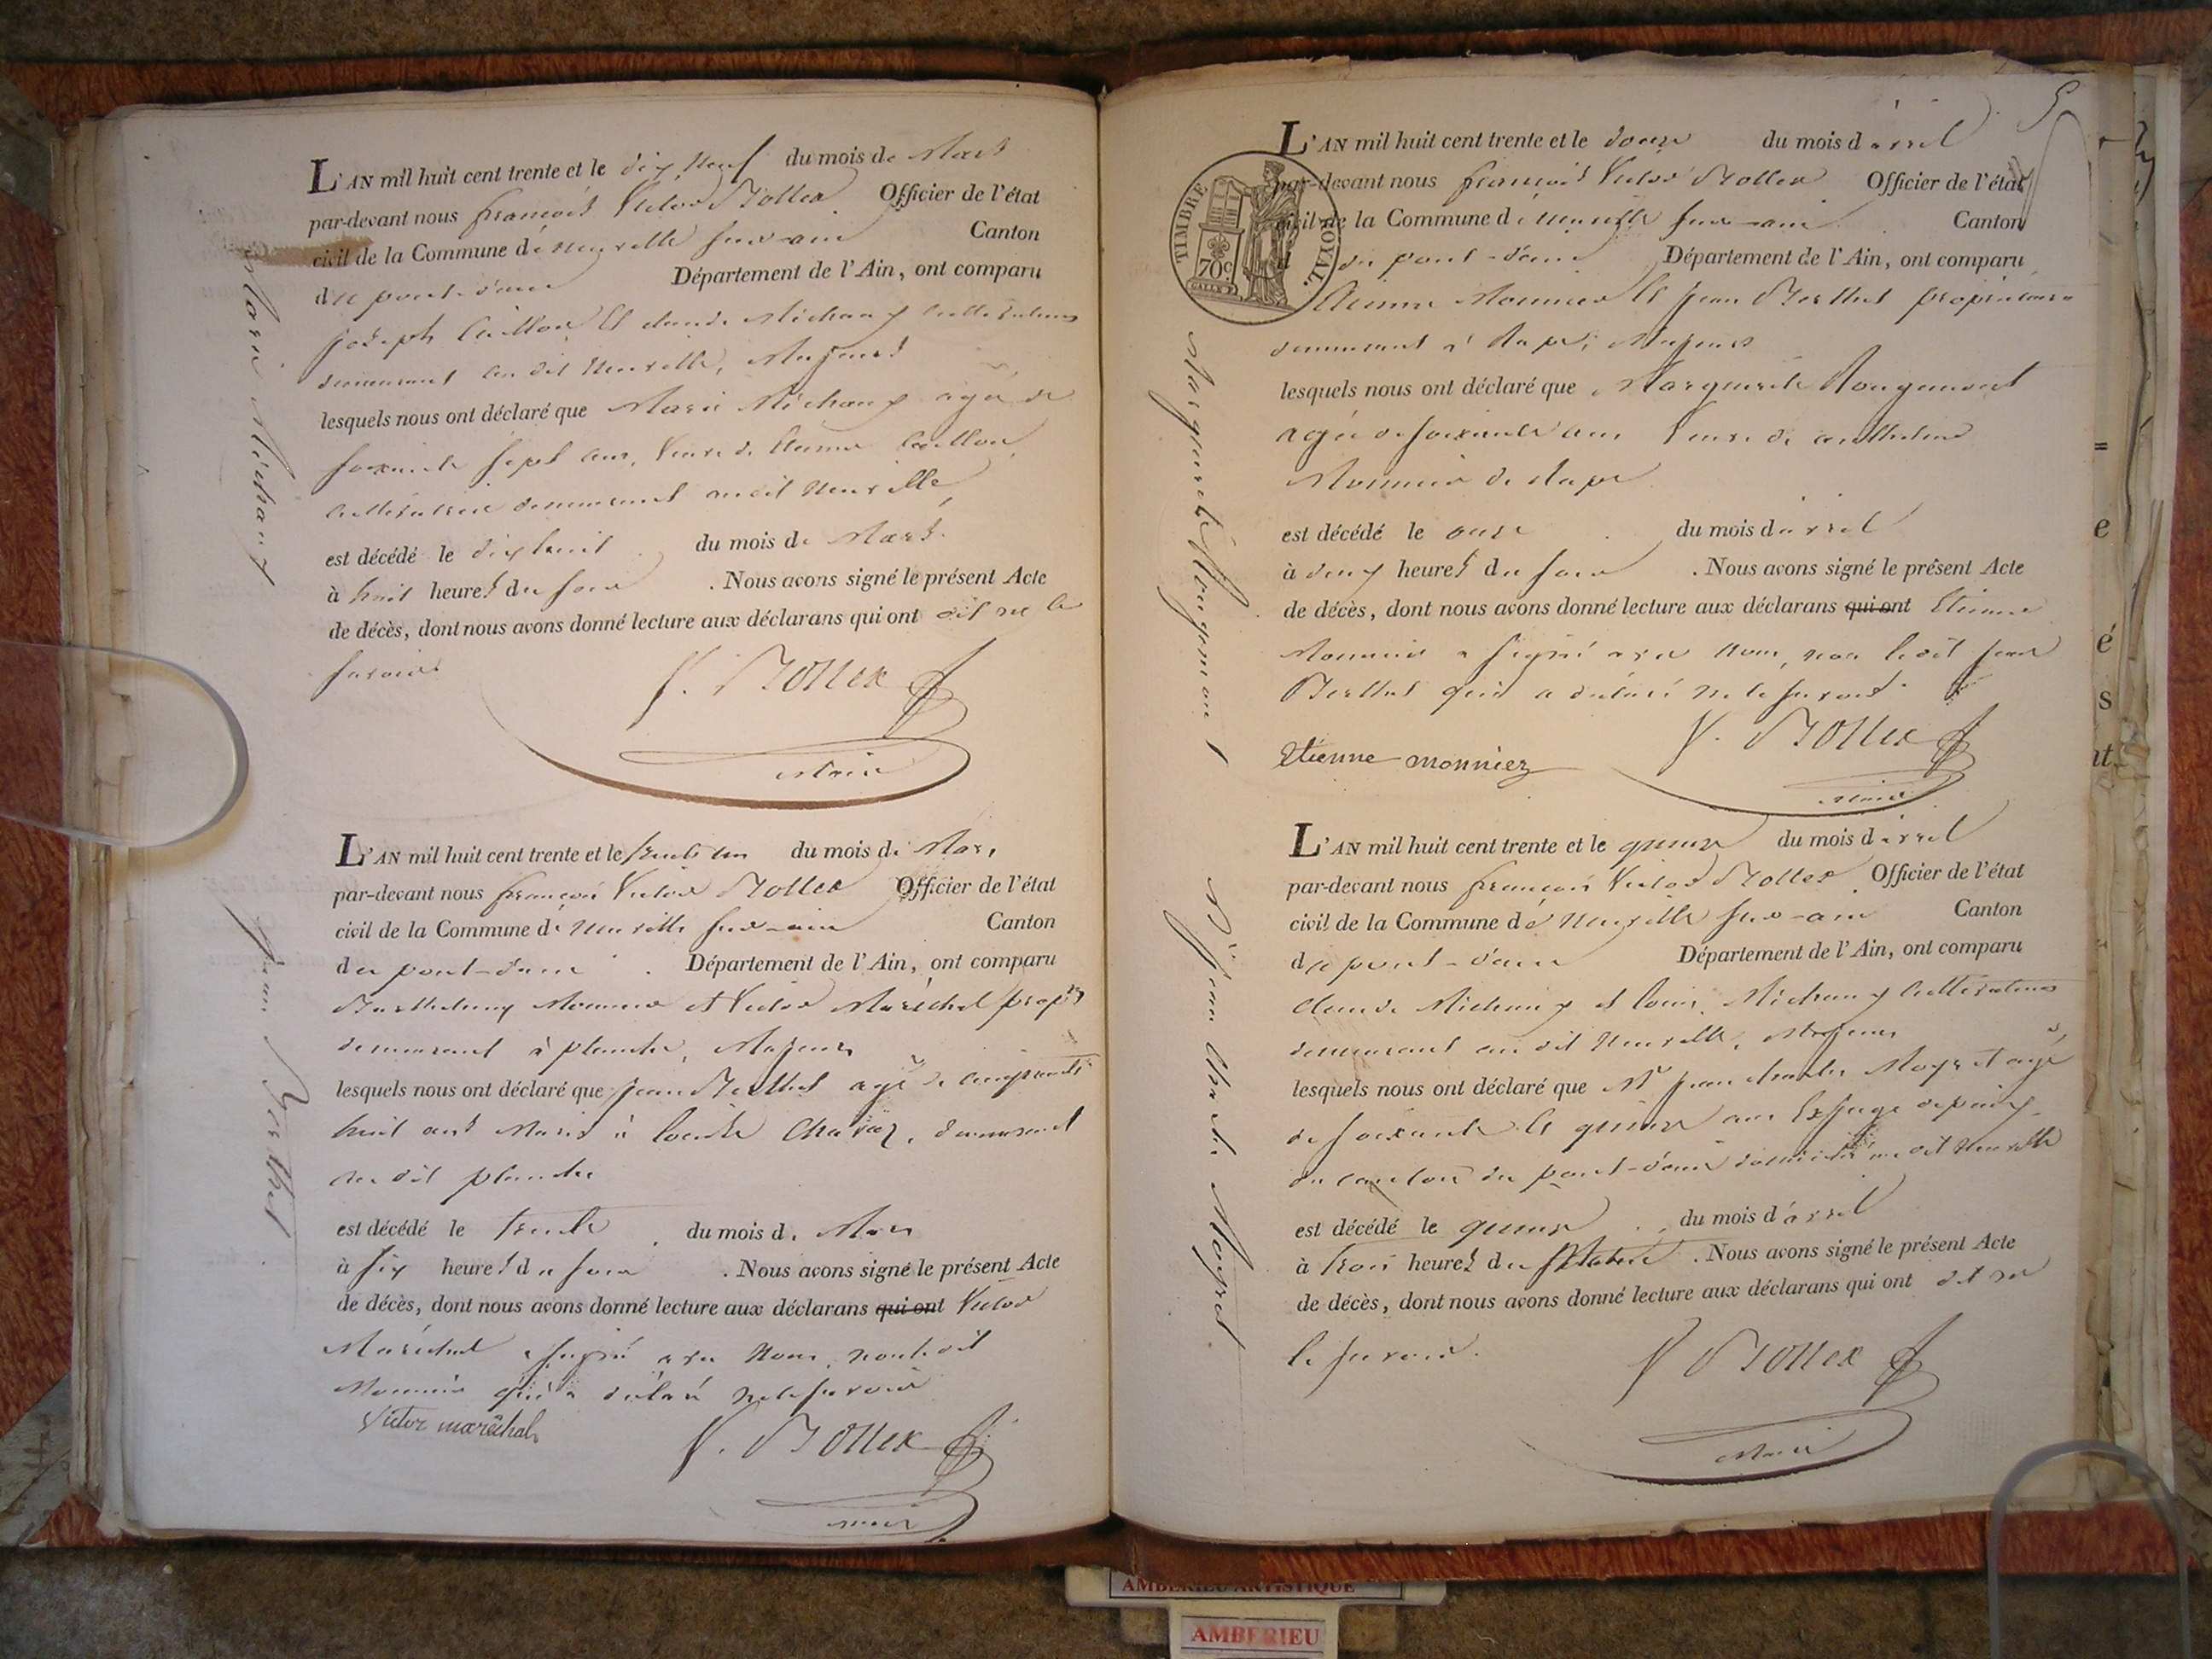 L'AN mil huit cent trente et le dix neuf du mois de Mars
par-devant nous françois Victor Bollex Officier de l'état
civil de la Commune de neuville sur-ain Canton
du pont-d'ain Département de l'Ain, ont comparu
joseph Caillon et claude Michaux cultivateurs
demeurant au dit Neuville, Majeurs
lesquels nous ont déclaré que Marie Michaux agée de
soixante sept ans, Veuve de Caillon,
cultivatrice demeurant audit neuville,
est décédé le dixhuit du mois de Mars.
à huit heures du soir . Nous avons signé le présent Acte
de décès, dont nous avons donné lecture aux déclarans qui ont dit ne le
savoir
V. Bollex
Maire
Marie Michaux
L'AN mil huit cent trente et le trente un du mois de Mars
par-devant nous françois Victor Bollex Officier de l'état
civil de la Commune de neuville sur-ain Canton
du pont-d'ain . Département de l'Ain, ont comparu
Barthelemy Monnier et Victor Maréchal prop.res
demeurant à planche, Majeurs
lesquels nous ont déclaré que jean Berthet agé de cinquante
huit ans Marié à , demeurant
au dit planche
est décédé le trente du mois de Mars
à six heures du soir . Nous avons signé le présent Acte
de décès, dont nous avons donné lecture aux déclarans qui ont Victor
Maréchal a signé avec Nous, non le dit
Monnier qui a déclaré ne le savoir
Victor maréchal
V. Bollex
maire
jean Berthet
5
L'AN mil huit cent trente et le douze du mois d'avril
par-devant nous françois Victor Bollex Officier de l'état
civil de la Commune de neuville sur-ain Canton
du pont-d'ain Département de l'Ain, ont comparu
TIMBRE ROYAL.
70c
Etienne Monnier et jean Berthet propriétaires
demeurant à , Majeurs
lesquels nous ont déclaré que Marguerite Rougemont
agée de soixante ans Veuve de anthelme
Monnier de
est décédé le onze du mois d'avril
à deux heures du soir . Nous avons signé le présent Acte
de décès, dont nous avons donné lecture aux déclarans qui ont Etienne
Monnier a signé avec Nous, non le dit jean
Berthet qui a déclaré ne le savoir.
Etienne monnier
V. Bollex
Maire
Marguerite Rougemont
L'AN mil huit cent trente et le quinze du mois d'avril
par-devant nous françois Victor Bollex Officier de l'état
civil de la Commune de Neuville sur-ain Canton
du pont-d'ain Département de l'Ain, ont comparu
claude Michaux et louis Michaux cultivateurs
demeurant au dit neuville, Majeurs
lesquels nous ont déclaré que Mr jean charles Moyret agé
de soixante et quinze ans Ex juge de paix
du canton du pont-d'ain domicilié au dit neuville
est décédé le quinze du mois d'avril
à trois heures du Matin . Nous avons signé le présent Acte
de décès, dont nous avons donné lecture aux déclarans qui ont dit ne
le savoir.
V Bollex
Maire
Mr jean charles Moyret
AMBERIEU ARTISTIQUE
AMBERIEU